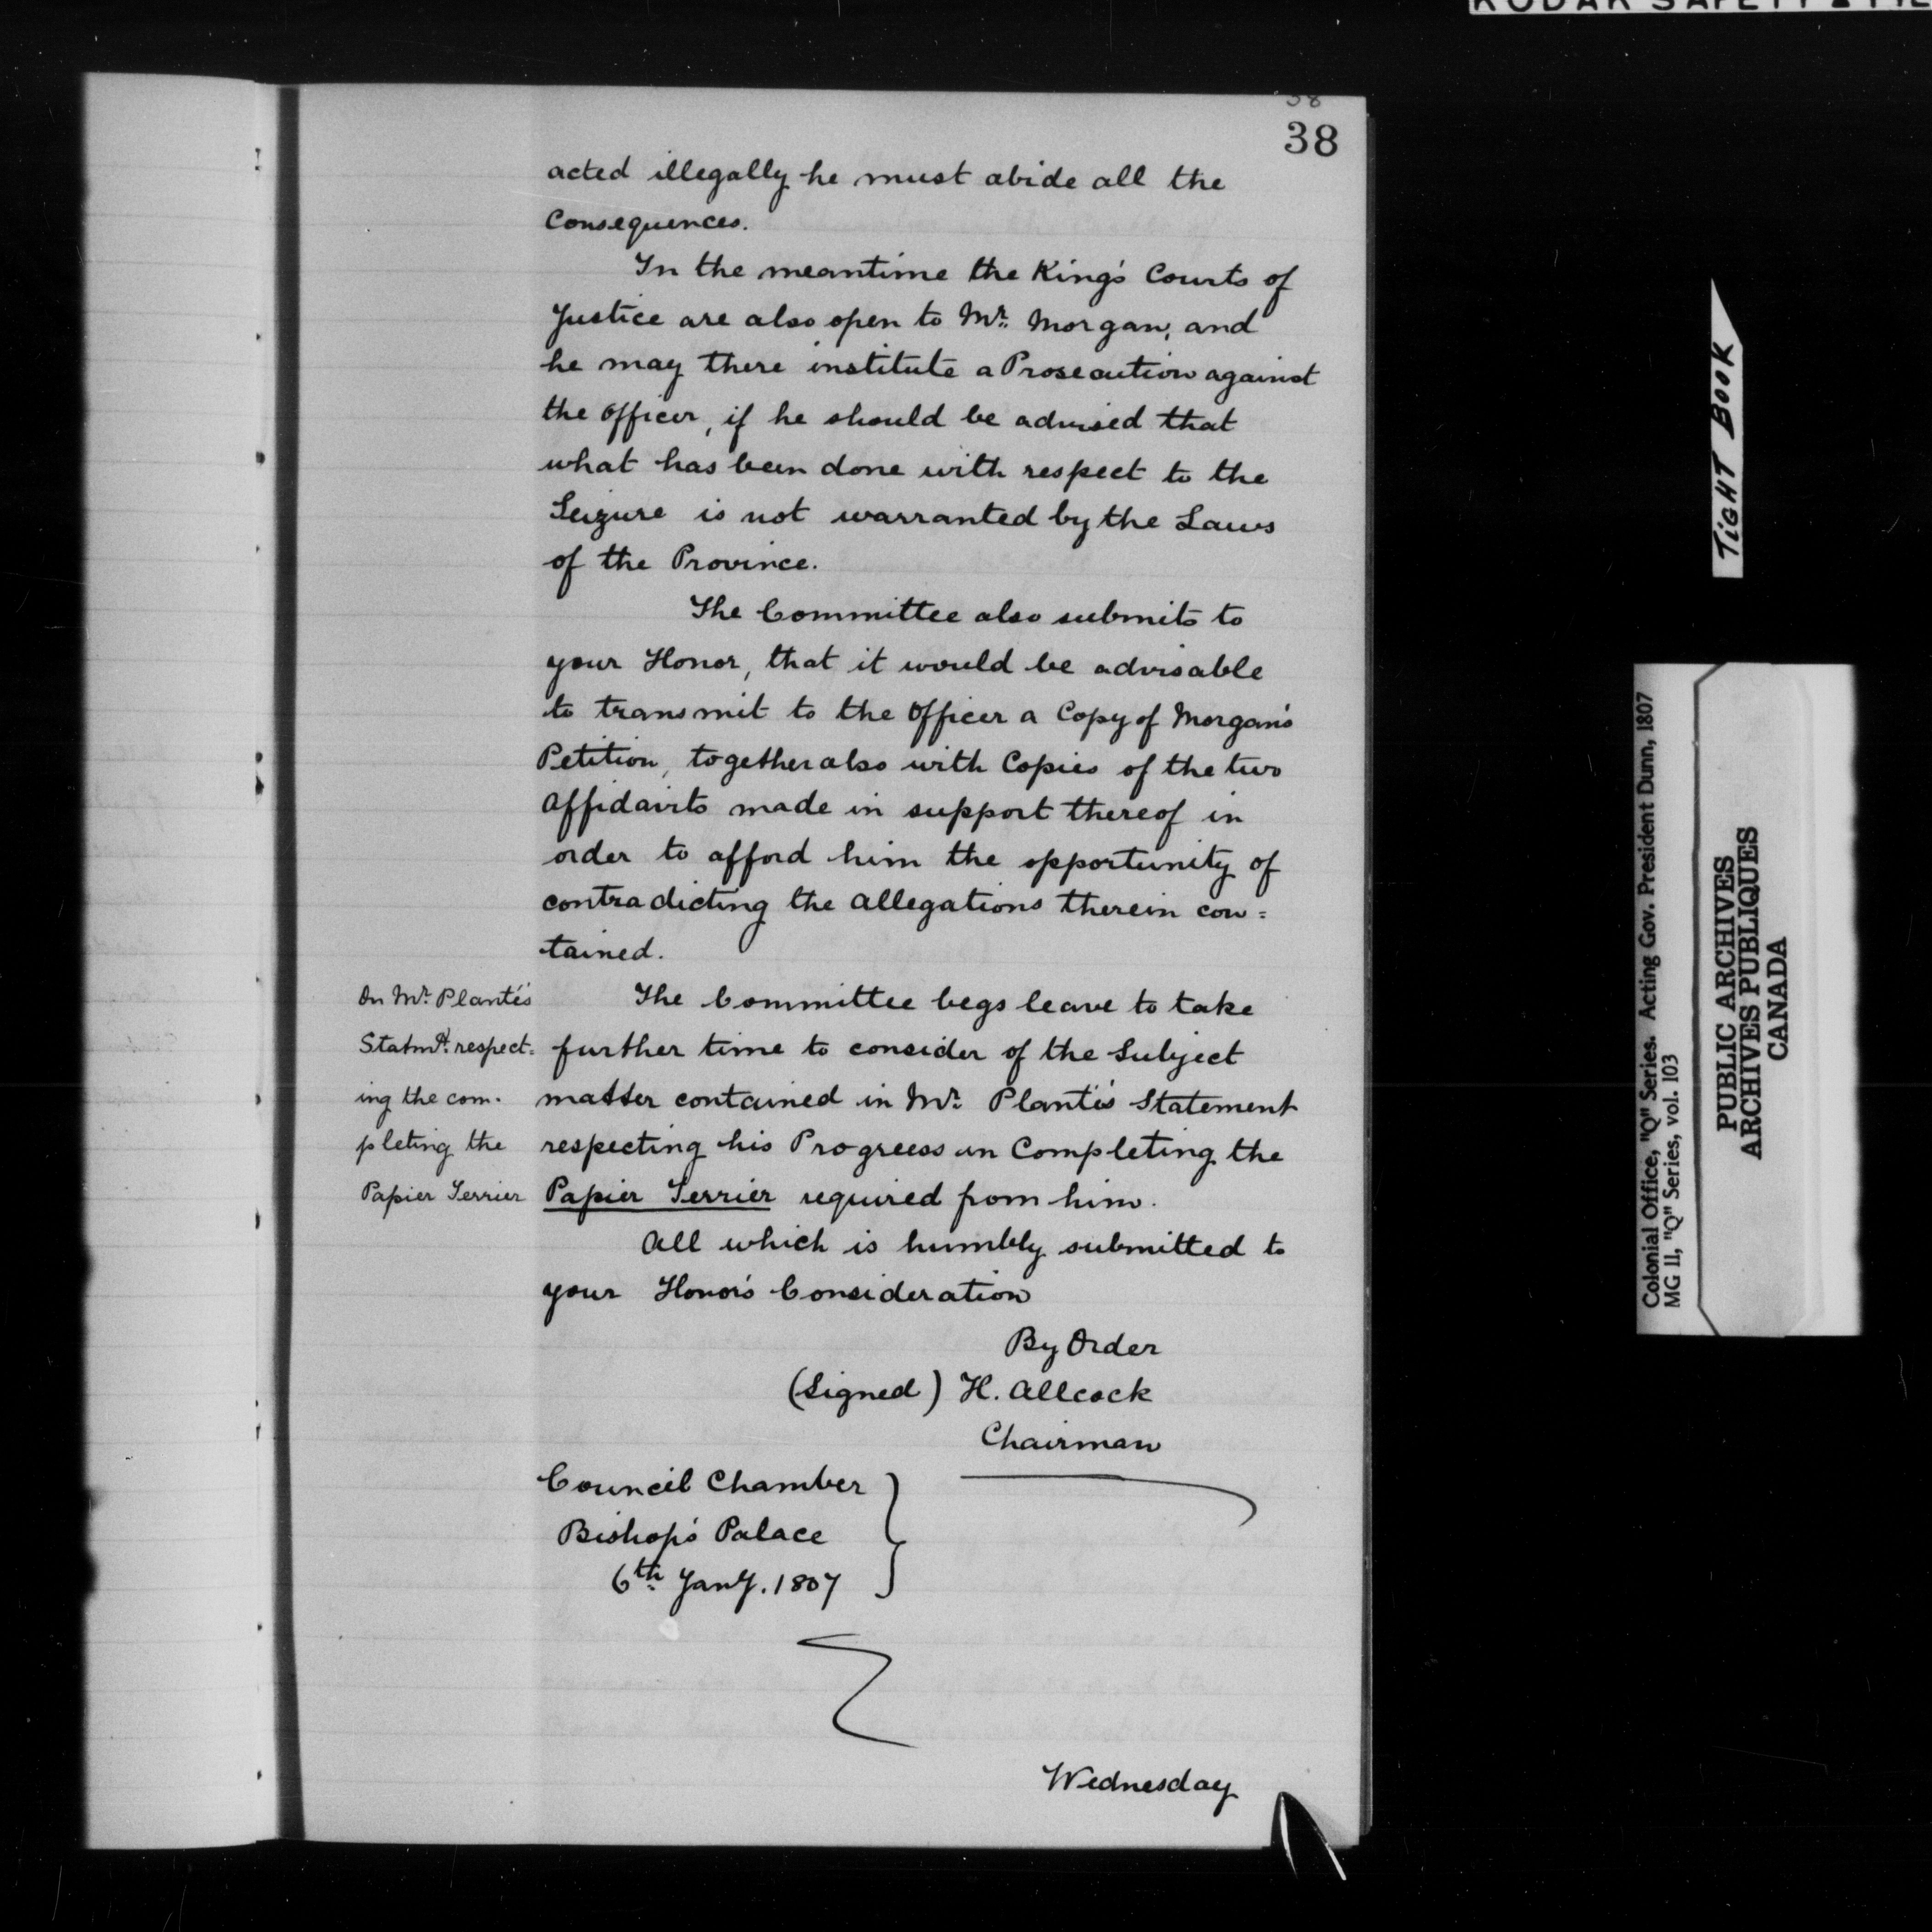 38
38
acted illegally he must abide all the
Consequences.
In the meantime the King's Courts of
Justice are also open to Mr. Morgan, and
he may there institute a Prosecution against
the Officer, if he should be advised that
what has been done with respect to the
Seizure is not warranted by the Laws
of the Province.
The Committee also submits to
your Honor, that it would be advisable
to transmit to the Officer a Copy of Morgan's
Petition, together also with Copies of the two
Affidavits made in support thereof in
order to afford him the opportunity of
contradicting the allegations therein con=
tained.
On Mr. Planté's
Statmt. respect=
ing the com-
pleting the
Papier Terrier
The Committee begs leave to take
further time to consider of the Subject
matter contained in Mr. Planté's Statement
respecting his Progress in Completing the
Papier Terrier required from him.
All which is humbly submitted to
your Honor's Consideration
By Order
(Signed) H. Allcock
Chairman
Council Chamber
Bishop's Palace
6th. Jany. 1807
Wednesday
TIGHT BOOK
Colonial Office, "Q" Series. Acting Gov. President Dunn, 1807
MG 11, "Q" Series, vol. 103
PUBLIC ARCHIVES
ARCHIVES PUBLIQUES
CANADA
KODAK SAFETY